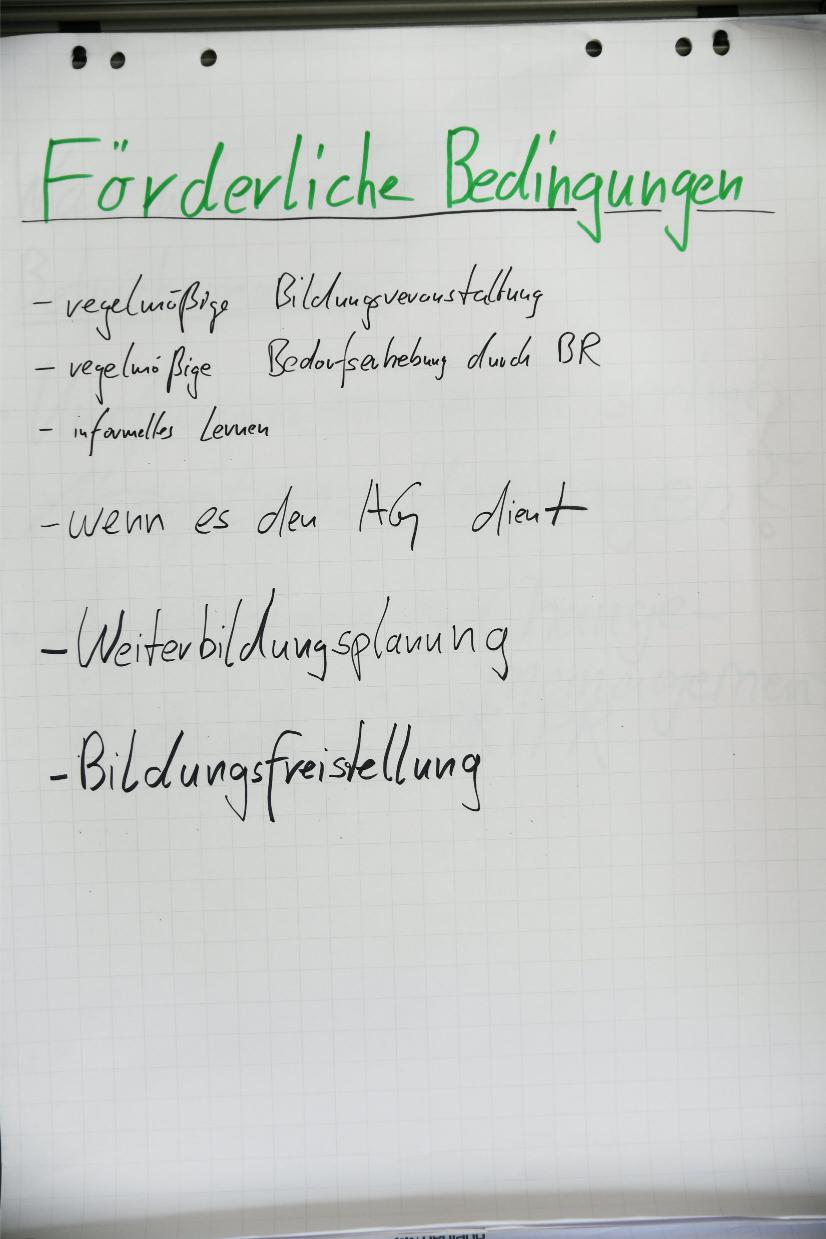 Förderliche Bedingungen
- regelmäßige Bildungsveranstaltung
- regelmäßige Bedarfserhebung durch BR
- informelles Lernen
- wenn es den AG dient
- Weiterbildungsplanung
- Bildungsfreistellung